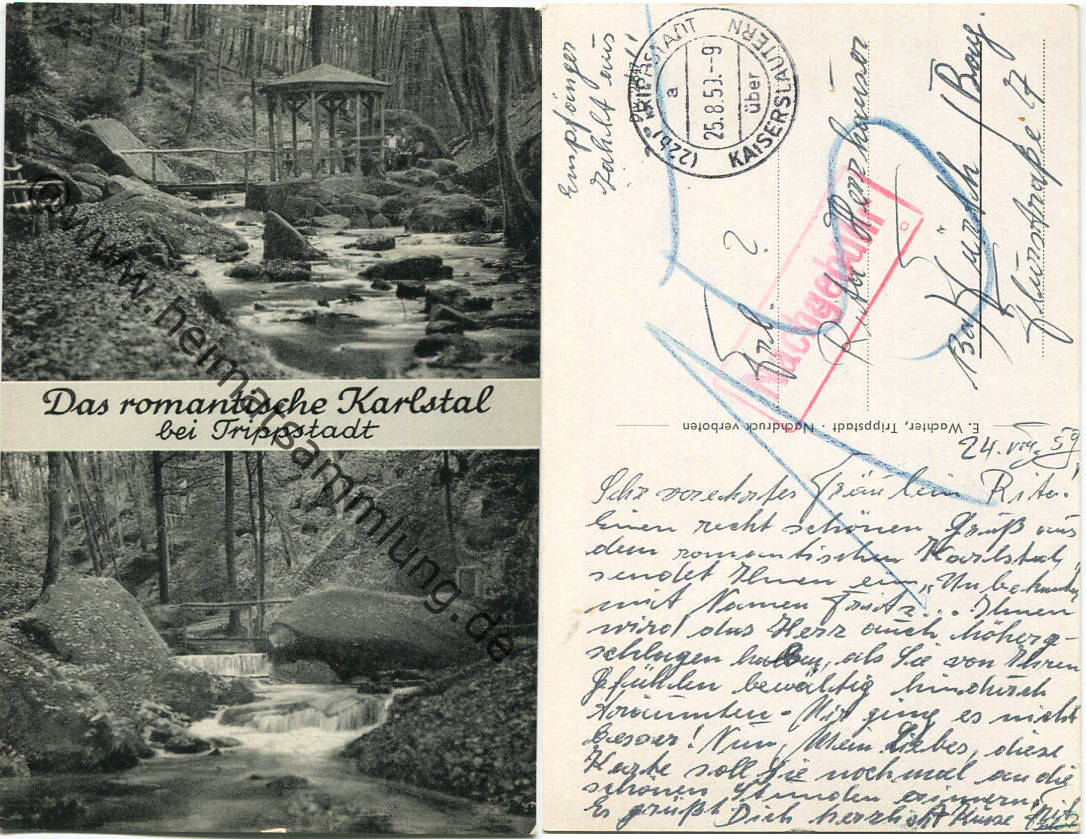 Das romantische Karlstal
bei Trippstadt
© www.heimatsammlung.de
Empfänger
zahlt ein
(22b) TRIPPSTADT
a
25.8.59.--9
über
KAISERSLAUTERN
Nachgebühr
Frl.
Rita
Flurstraße 17
E. Wachter, Trippstadt · Nachdruck verboten
24. 59
Sehr verehrtes Fräulein Rita!
Einen recht schönen Gruß aus
dem romantischen Karlstal,
sendet Ihnen ein „Unbekannter
mit Namen Fritz... Ihnen
wird das Herz auch höherge-
schlagen haben, als Sie von Ihren
Gefühlen bewältig hindurch
träumten - Mir ging es nicht
besser! Nun, Mein Liebes, diese
Karte soll Sie nochmal an die
schönen Stunden erinnern.
Es grüßt Dich herzlichst Küsse Fritz